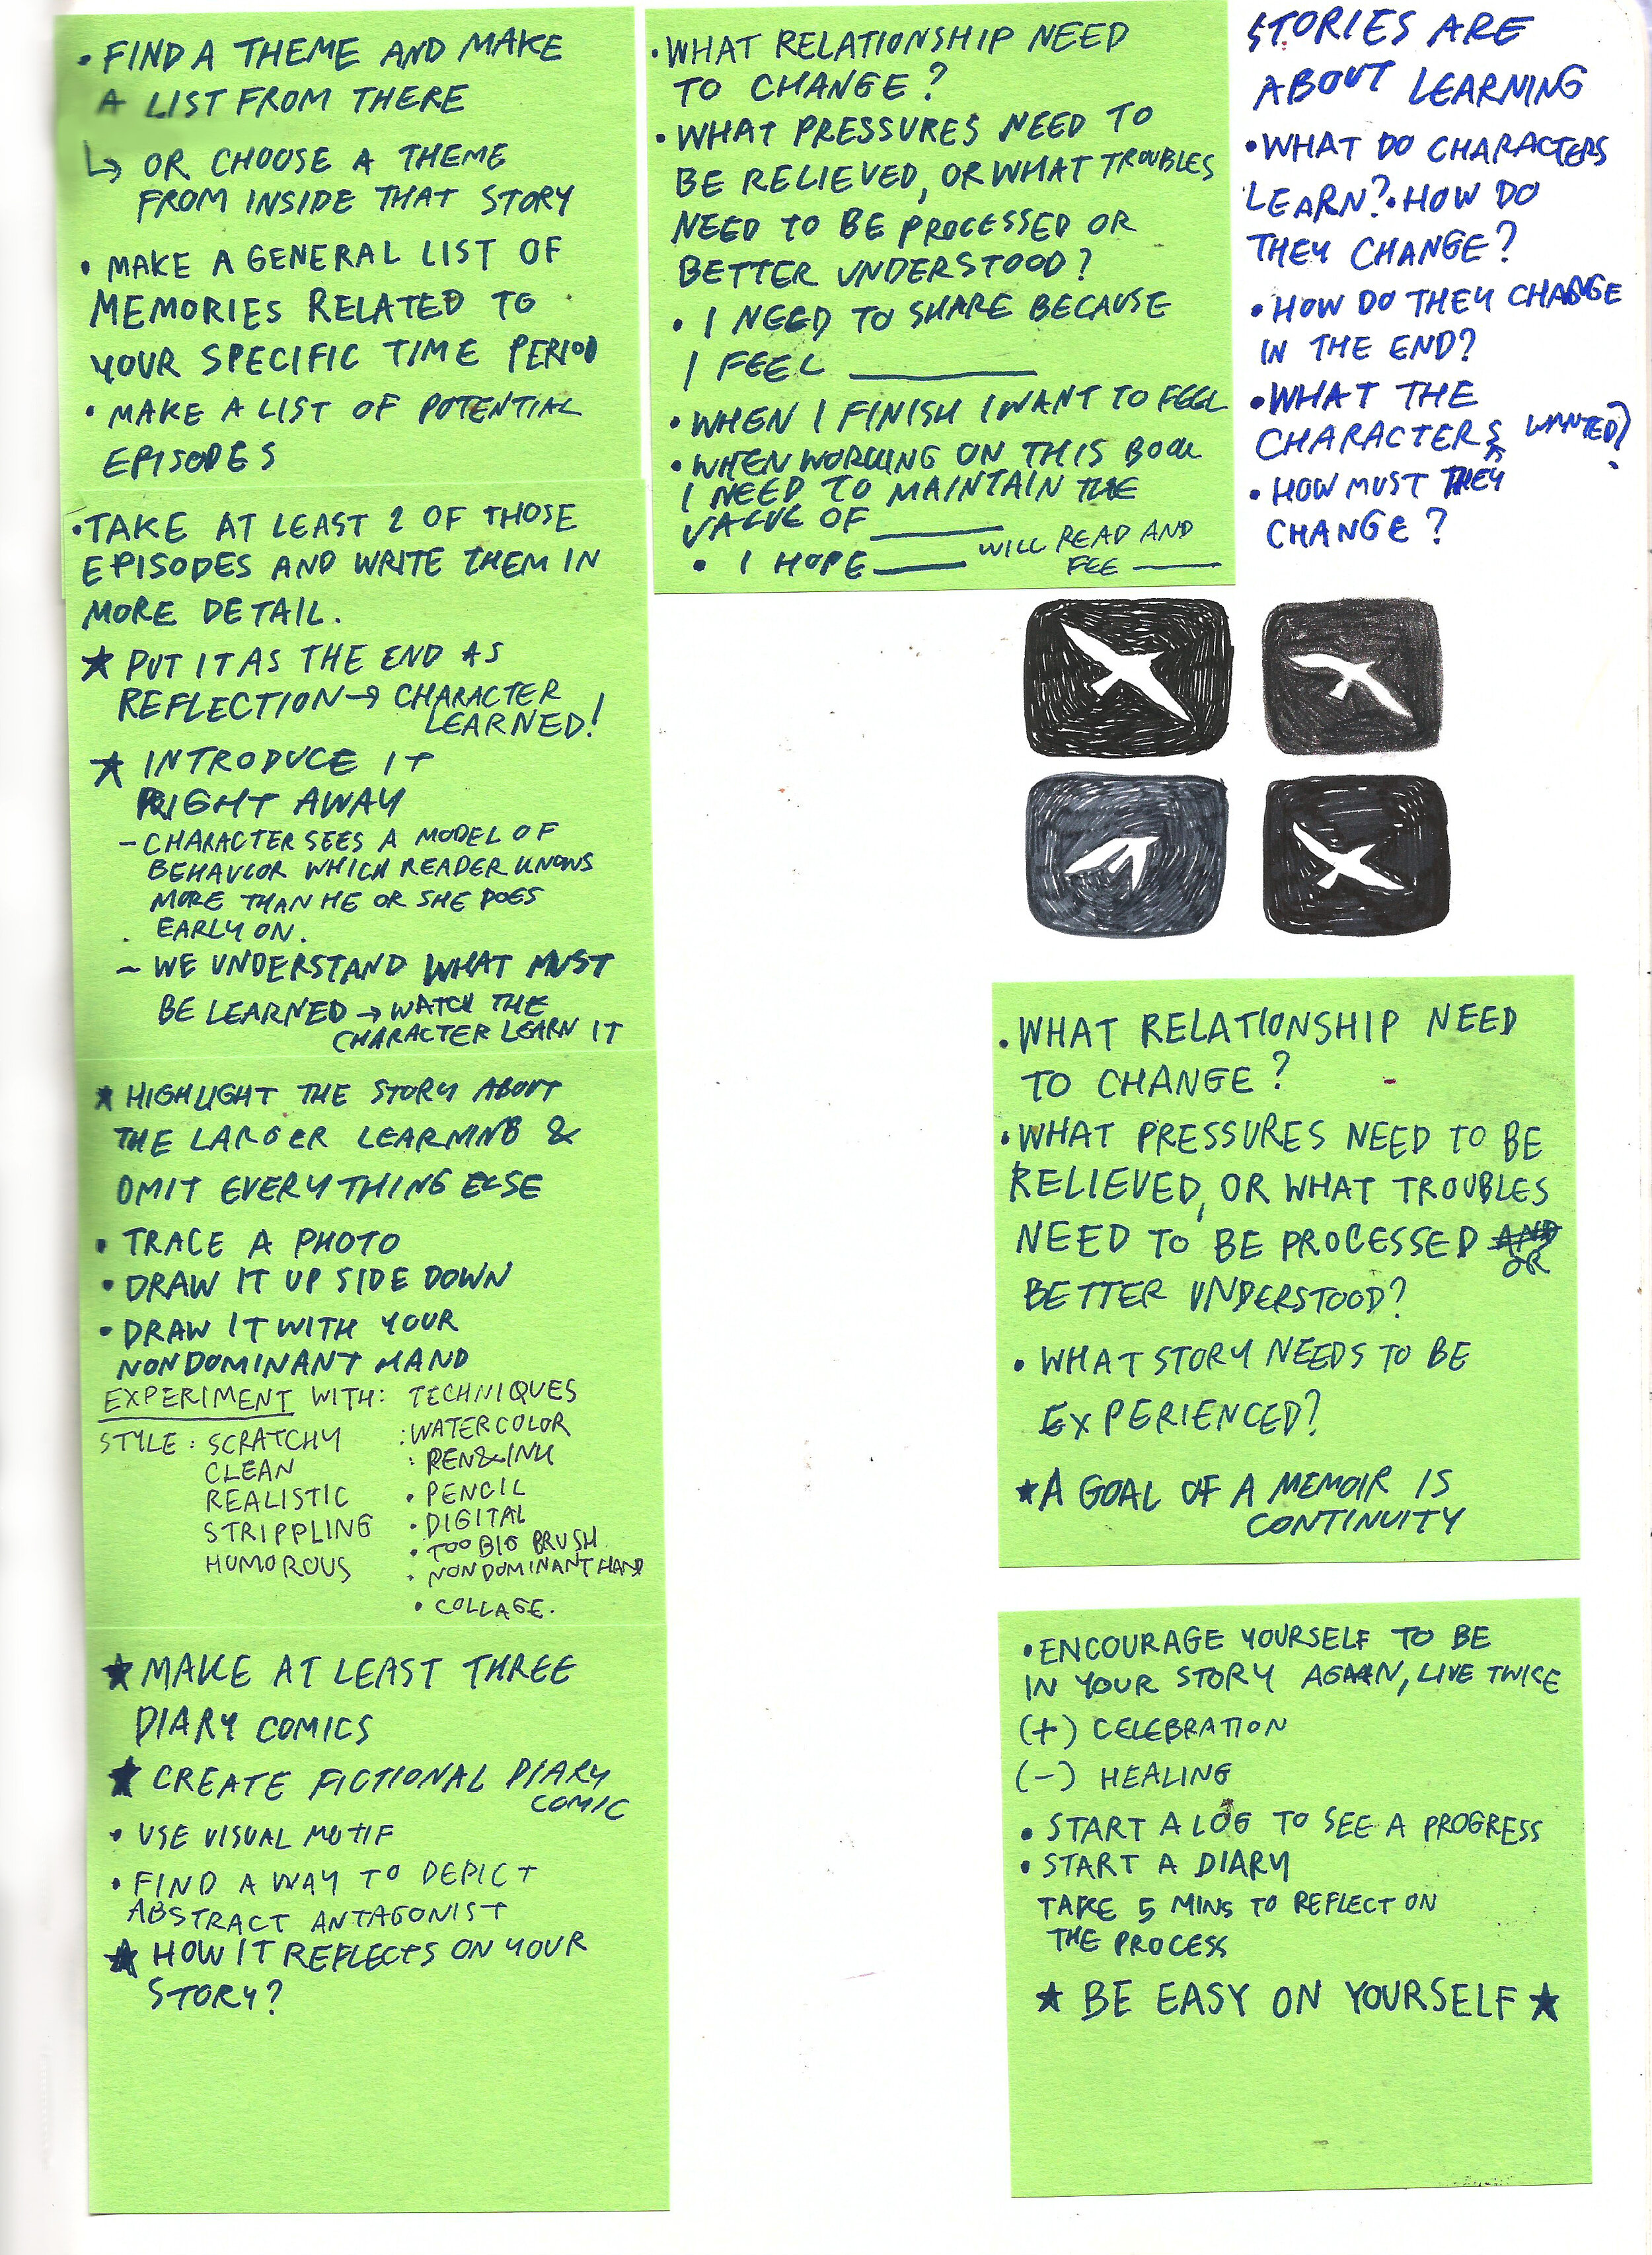 • FIND A THEME AND MAKE
A LIST FROM THERE
↳ OR CHOOSE A THEME
FROM INSIDE THAT STORY
• MAKE A GENERAL LIST OF
MEMORIES RELATED TO
YOUR SPECIFIC TIME PERIOD
• MAKE A LIST OF POTENTIAL
EPISODES
• TAKE AT LEAST 2 OF THOSE
EPISODES AND WRITE THEM IN
MORE DETAIL.
★ PUT IT AS THE END AS
REFLECTION → CHARACTER
LEARNED!
★ INTRODUCE IT
RIGHT AWAY
- CHARACTER SEES A MODEL OF
BEHAVIOR WHICH READER KNOWS
MORE THAN HE OR SHE DOES
EARLY ON.
- WE UNDERSTAND WHAT MUST
BE LEARNED → WATCH THE
CHARACTER LEARN IT
★ HIGHLIGHT THE STORY ABOUT
THE LARGER LEARNING &
OMIT EVERYTHING ELSE
• TRACE A PHOTO
• DRAW IT UP SIDE DOWN
• DRAW IT WITH YOUR
NONDOMINANT HAND
EXPERIMENT WITH: TECHNIQUES
STYLE: SCRATCHY : WATERCOLOR
CLEAN : PEN & INK
REALISTIC • PENCIL
STRIPPLING • DIGITAL
• TOO BIG BRUSH
HUMOROUS • NONDOMINANT HAND
• COLLAGE.
★ MAKE AT LEAST THREE
DIARY COMICS
★ CREATE FICTIONAL DIARY
COMIC
• USE VISUAL MOTIF
• FIND A WAY TO DEPICT
ABSTRACT ANTAGONIST
★ HOW IT REFLECTS ON YOUR
STORY?
• WHAT RELATIONSHIP NEED
TO CHANGE?
• WHAT PRESSURES NEED TO
BE RELIEVED, OR WHAT TROUBLES
NEED TO BE PROCESSED OR
BETTER UNDERSTOOD?
• I NEED TO SHARE BECAUSE
I FEEL ______
• WHEN I FINISH I WANT TO FEEL
• WHEN WORKING ON THIS BOOK
I NEED TO MAINTAIN THE
VALUE OF ______
• I HOPE ____ WILL READ AND
FEE ____
STORIES ARE
ABOUT LEARNING
• WHAT DO CHARACTERS
LEARN? • HOW DO
THEY CHANGE?
• HOW DO THEY CHANGE
IN THE END?
• WHAT THE
CHARACTERS WANTED?
• HOW MUST THEY
CHANGE?
• WHAT RELATIONSHIP NEED
TO CHANGE?
• WHAT PRESSURES NEED TO BE
RELIEVED, OR WHAT TROUBLES
NEED TO BE PROCESSED AND
OR
BETTER UNDERSTOOD?
• WHAT STORY NEEDS TO BE
EXPERIENCED?
★ A GOAL OF A MEMOIR IS
CONTINUITY
• ENCOURAGE YOURSELF TO BE
IN YOUR STORY AGAIN, LIVE TWICE
(+) CELEBRATION
(-) HEALING
• START A LOG TO SEE A PROGRESS
• START A DIARY
TAKE 5 MINS TO REFLECT ON
THE PROCESS
★ BE EASY ON YOURSELF ★